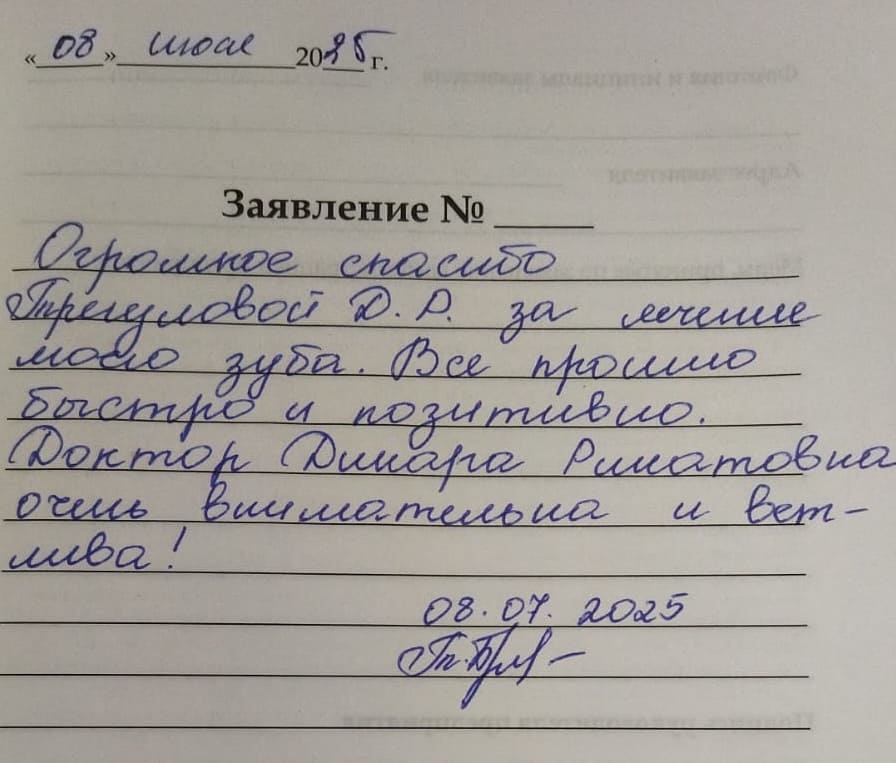 «08» июля 2025 г.
Заявление № ______
Огромное спасибо
Трегуловой Д. Р. за лечение
моего зуба. Все прошло
быстро и позитивно.
Доктор Динара Ринатовна
очень внимательна и вет-
лива!
08.07.2025